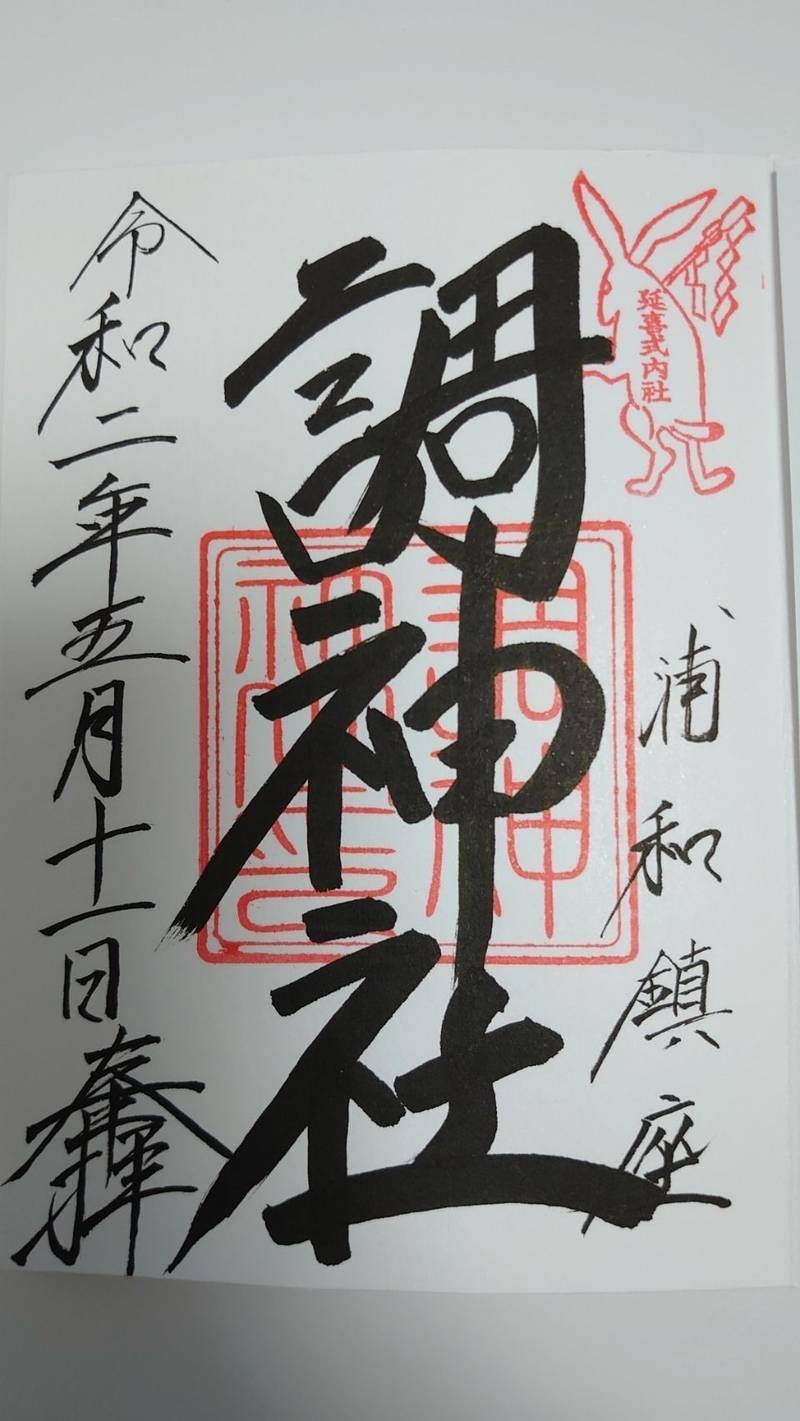 延喜式内社
浦和鎮座
調神社
調神社印
令和二年五月十一日奉拝